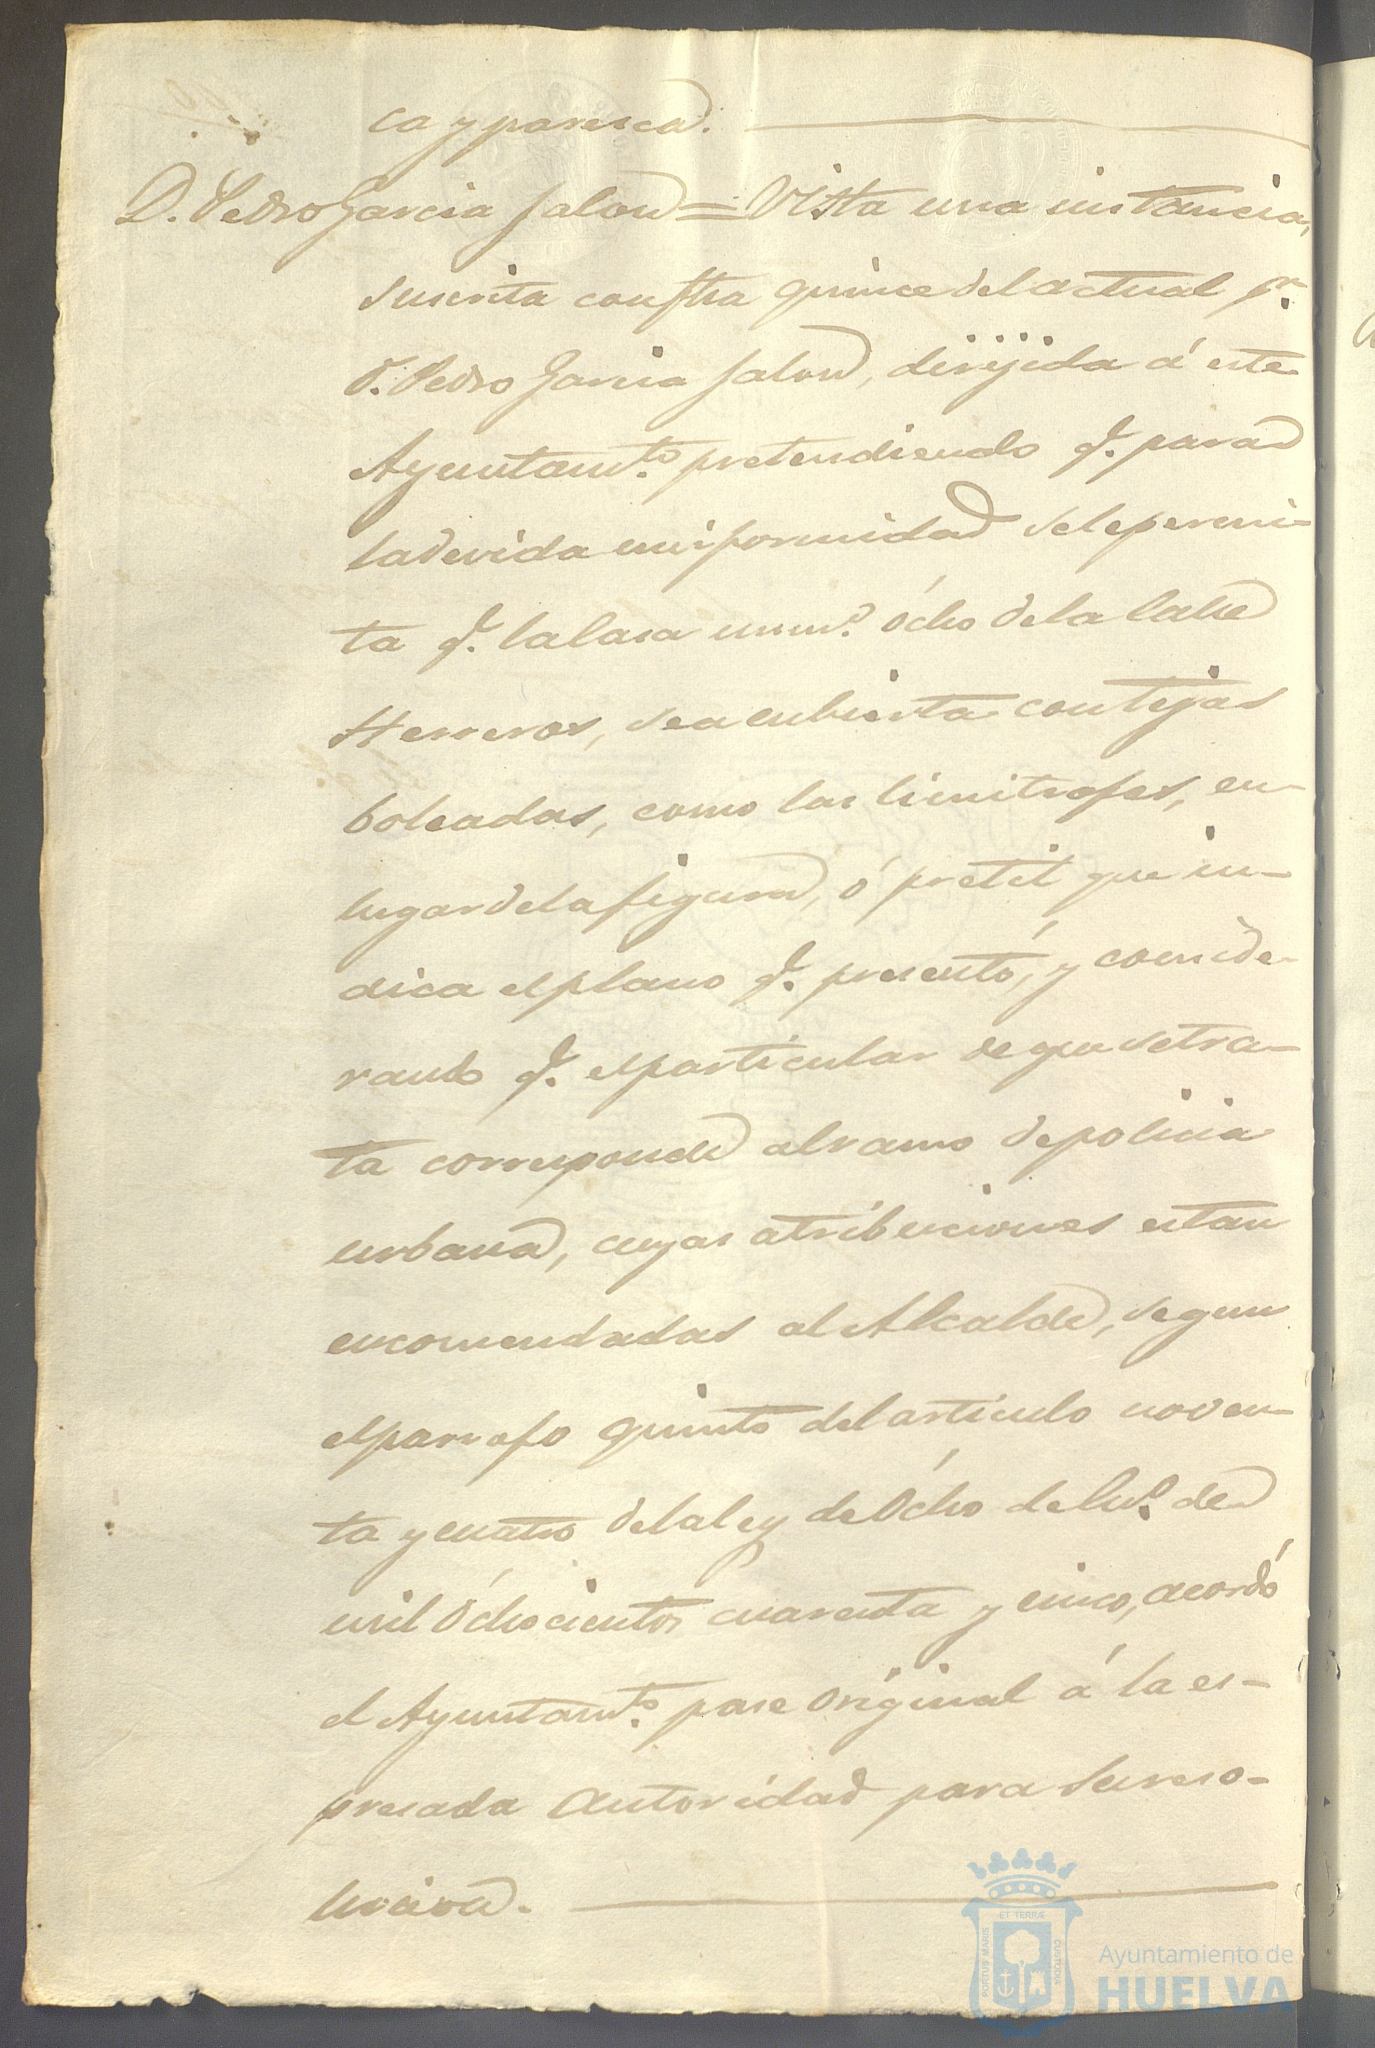 ca y paresca.
D. Pedro Garcia Jalon = Vista una instancia,
suscrita con fha quince del actual pr.
D. Pedro Garcia Jalon, dirijida á este
Ayuntamto. pretendiendo q. para
la devida uniformidad se le permi-
ta q. la casa num.o ócho de la calle
Herreros, sea cubierta con tejas
boleadas, como las limitrofes, en
lugar de la figura, ó pretil que in-
dica el plano q. presentó, y conside-
rando q. el particular de que se tra-
ta corresponde al ramo de policia
urbana, cuyas atribuciones estan
encomendadas al Alcalde, segun
el parrafo quinto del articulo noven-
ta y cuatro de la ley de Ócho de En.o de
mil Óchocientos cuarenta y cinco, acordó
el Ayuntamto. pase original á la es-
presada autoridad para su reso-
lucion.
PORTUS MARIS ET TERRÆ CUSTODIA
Ayuntamiento de
HUELVA